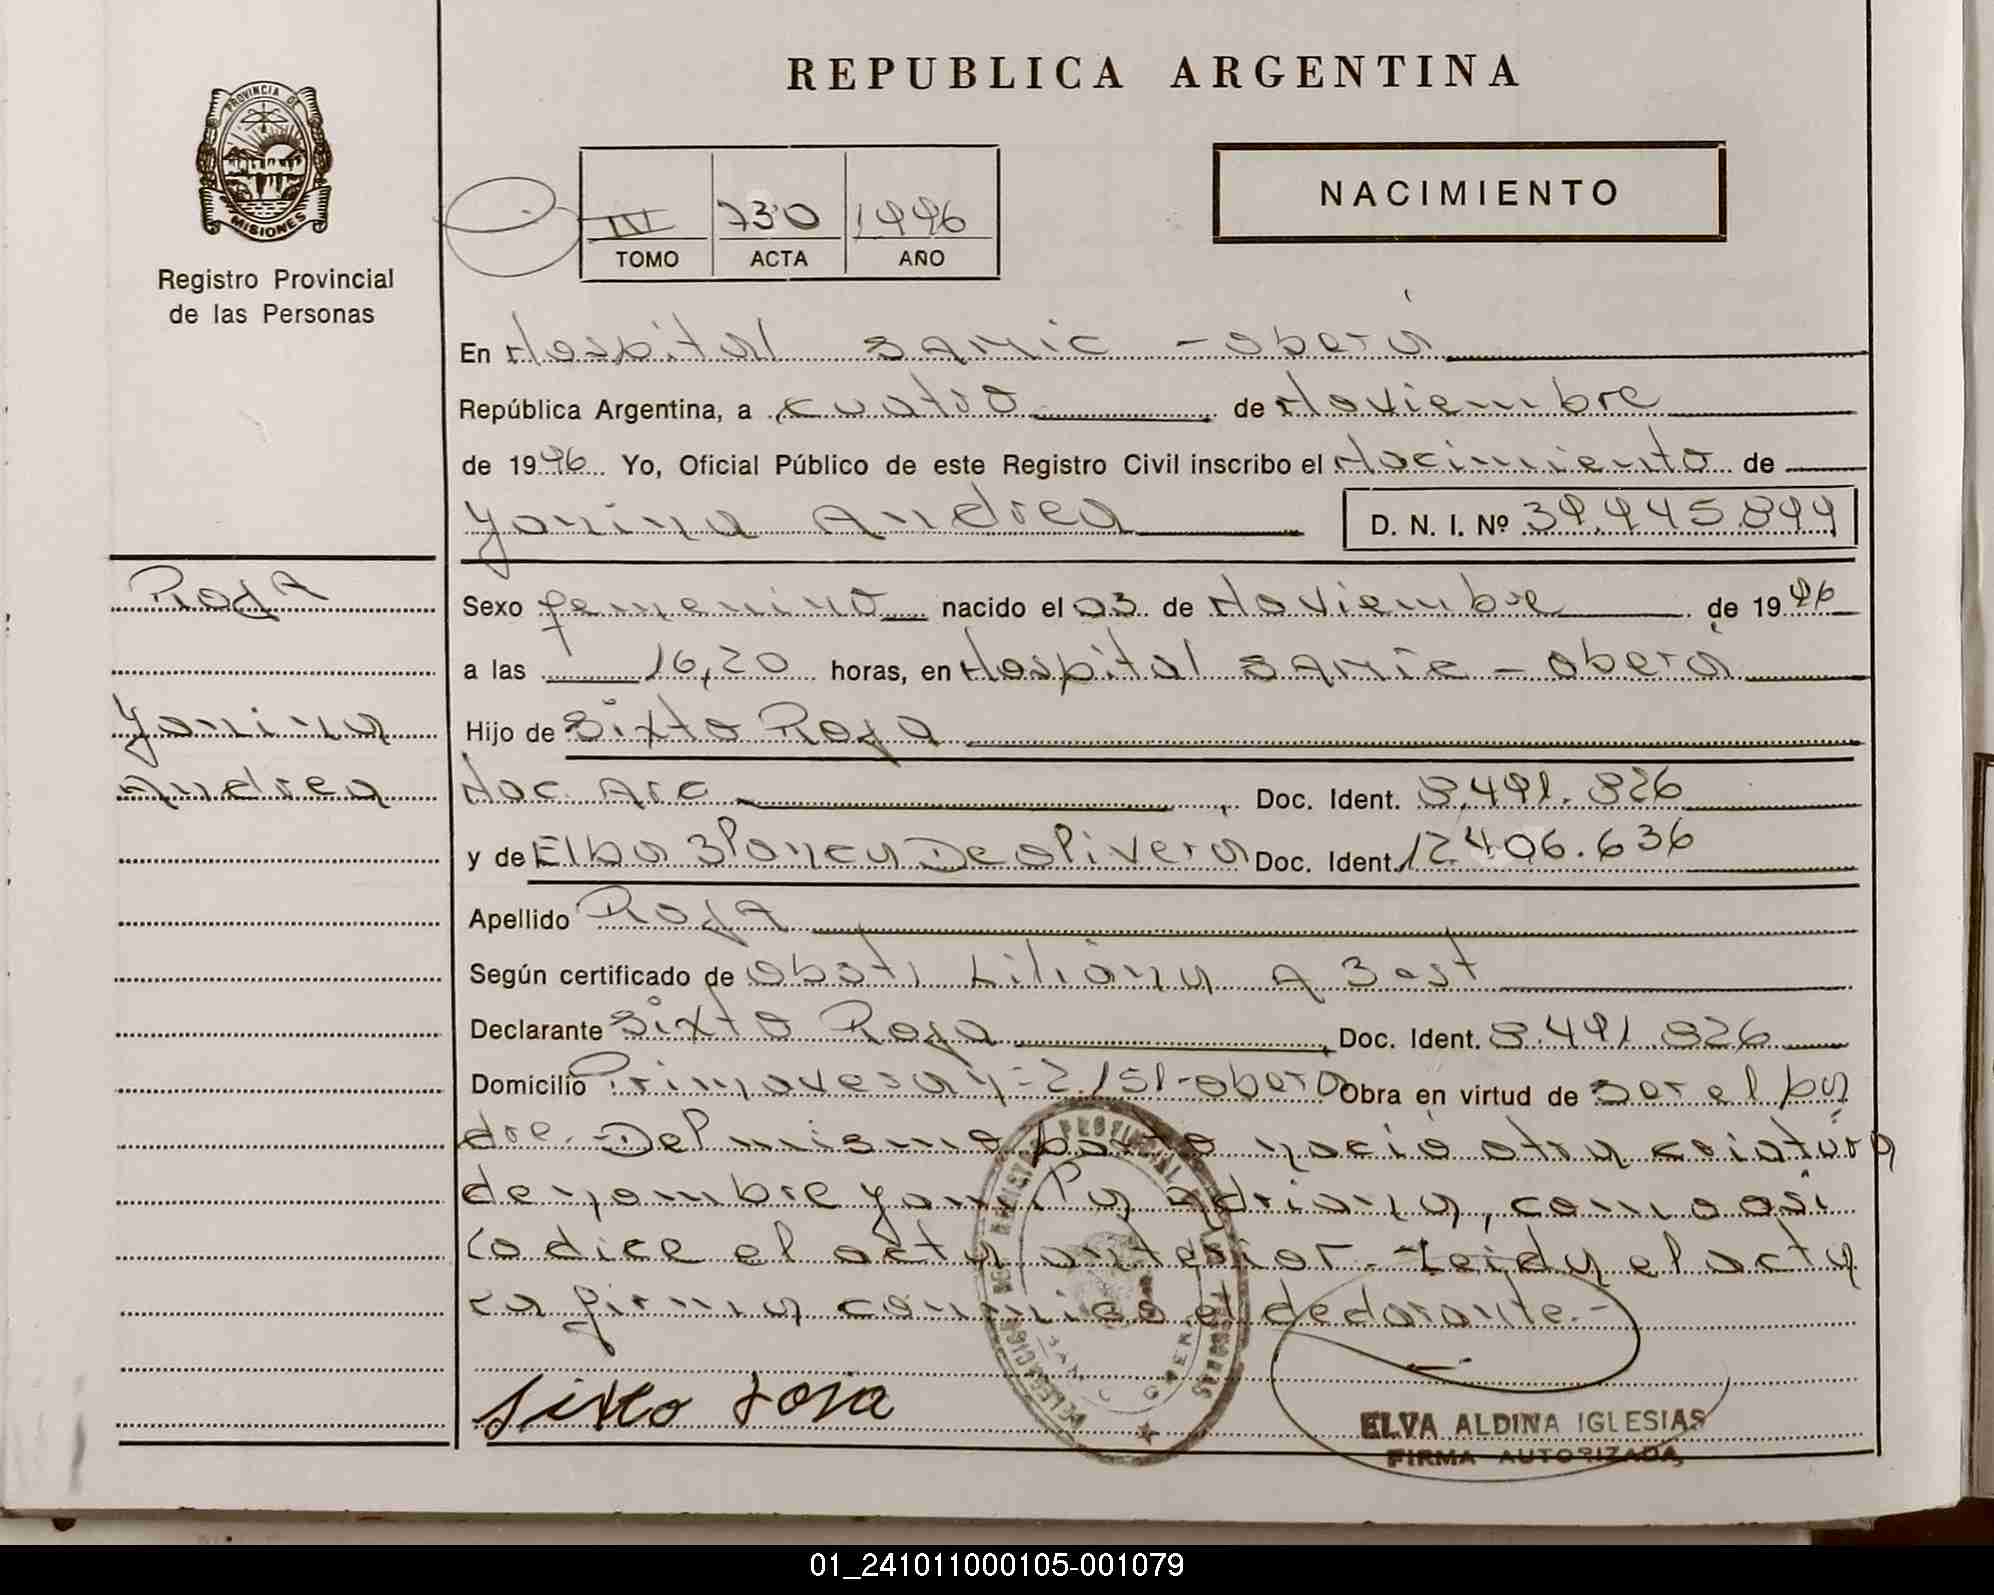 REPUBLICA ARGENTINA
PROVINCIA DE
MISIONES
Registro Provincial
de las Personas
III 730 1996
TOMO ACTA AÑO
NACIMIENTO
En Hospital SAMIC - Oberá
República Argentina, a cuatro de Noviembre
de 1996 Yo, Oficial Público de este Registro Civil inscribo el Nacimiento de
Yanina Andrea D. N. I. Nº 39.945.899
Roja
Sexo femenino nacido el 03 de Noviembre de 1996
a las 16,20 horas, en Hospital SAMIC - Oberá
Yanina
Hijo de Sixto Roja
Andrea
Nac. Arg Doc. Ident. 8.491.826
y de Elba Blanca De olivera Doc. Ident. 12.406.636
Apellido Roja
Según certificado de obst. Liliana A Best
Declarante Sixto Roja, Doc. Ident. 8.491.826
Domicilio Primavera y 2.151-oberá Obra en virtud de ser el pa
dre.- Del mismo parto nació otra criatura
de nombre Yamila Adriana, como asi
lo dice el acta anterior.- Leida el acta
la firma conmigo el declarante.-
Sixto Roja
ELVA ALDINA IGLESIAS
FIRMA AUTORIZADA
01_241011000105-001079